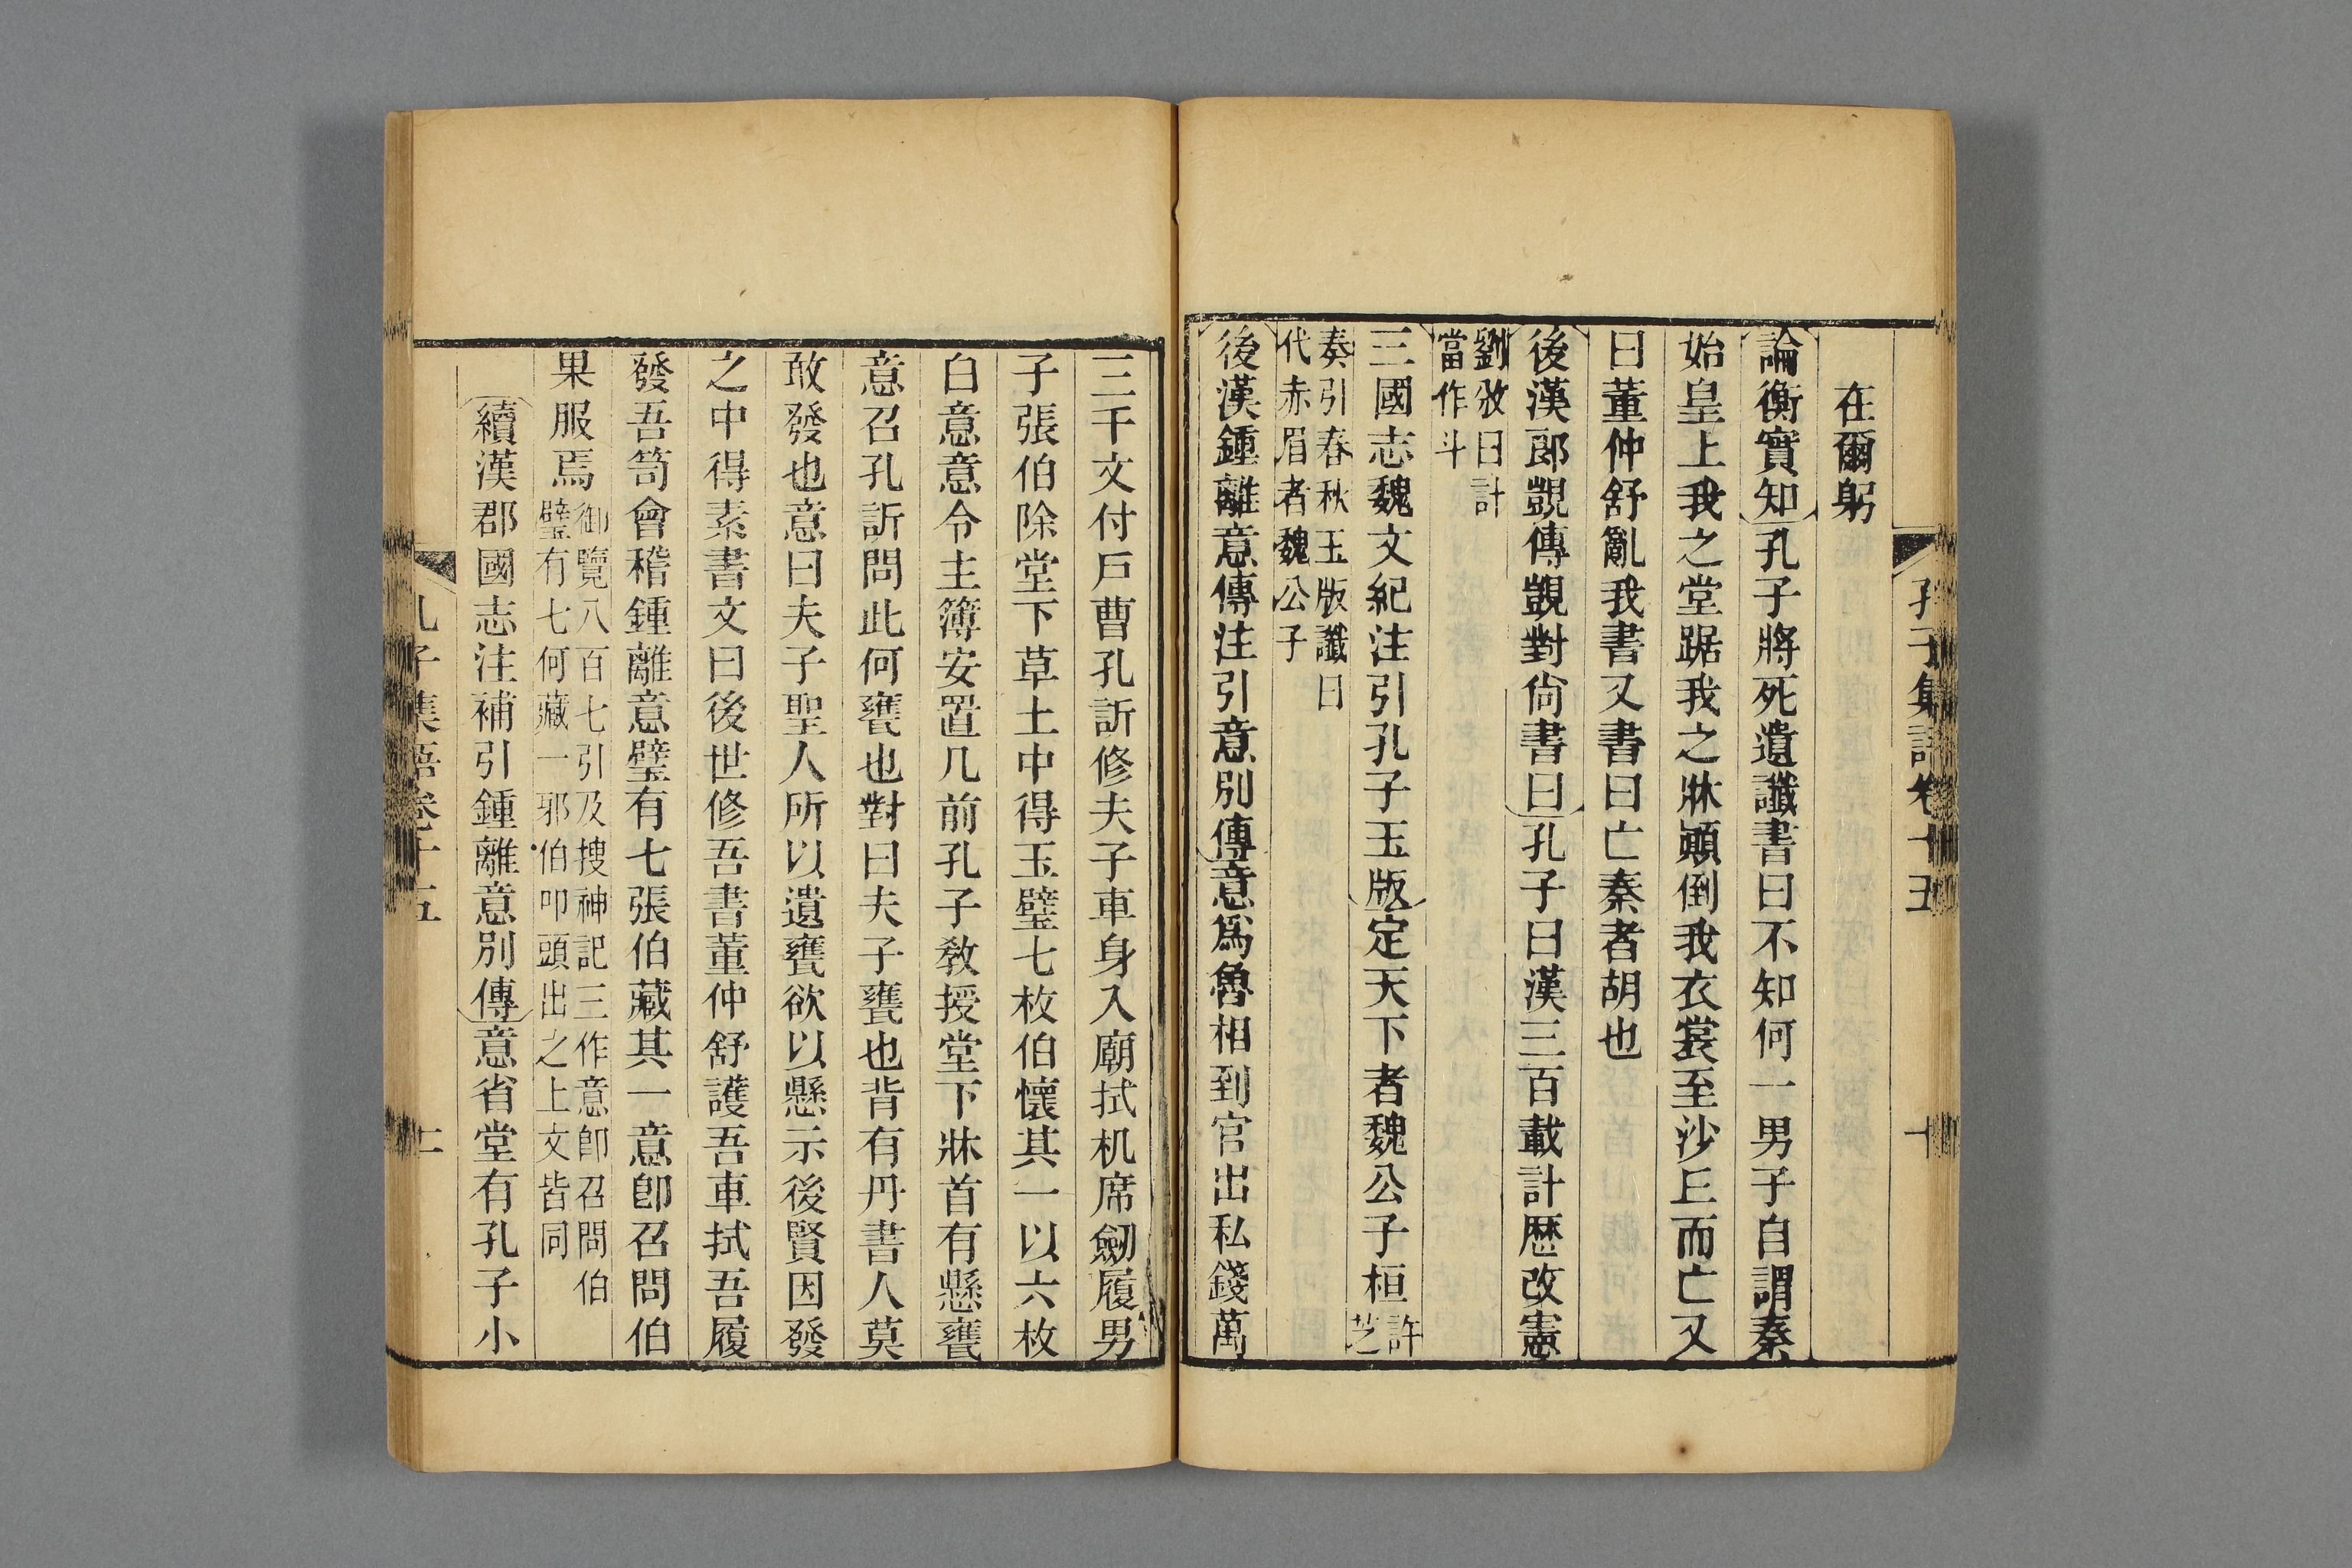 孔子集語卷十五
十
在爾躬
論衡實知孔子將死遺讖書曰不知何一男子自謂秦
始皇上我之堂踞我之牀顚倒我衣裳至沙丘而亡又
曰董仲舒亂我書又書曰亡秦者胡也
後漢郎顗傳顗對尙書曰孔子曰漢三百載計歷改憲
劉攽曰計
當作斗
三國志魏文紀注引孔子玉版定天下者魏公子桓許
芝
奏引春秋玉版讖曰
代赤眉者魏公子
後漢鍾離意傳注引意別傳意爲魯相到官出私錢萬
三千文付戸曹孔訢修夫子車身入廟拭机席劒履男
子張伯除堂下草土中得玉璧七枚伯懷其一以六枚
白意意令主簿安置几前孔子敎授堂下牀首有懸甕
意召孔訢問此何甕也對曰夫子甕也背有丹書人莫
敢發也意曰夫子聖人所以遺甕欲以懸示後賢因發
之中得素書文曰後世修吾書董仲舒護吾車拭吾履
發吾笥會稽鍾離意璧有七張伯藏其一意卽召問伯
果服焉
御覽八百七引及搜神記三作意卽召問伯
璧有七何藏一邪伯叩頭出之上文皆同
續漢郡國志注補引鍾離意別傳意省堂有孔子小
孔子集語卷十五
十一